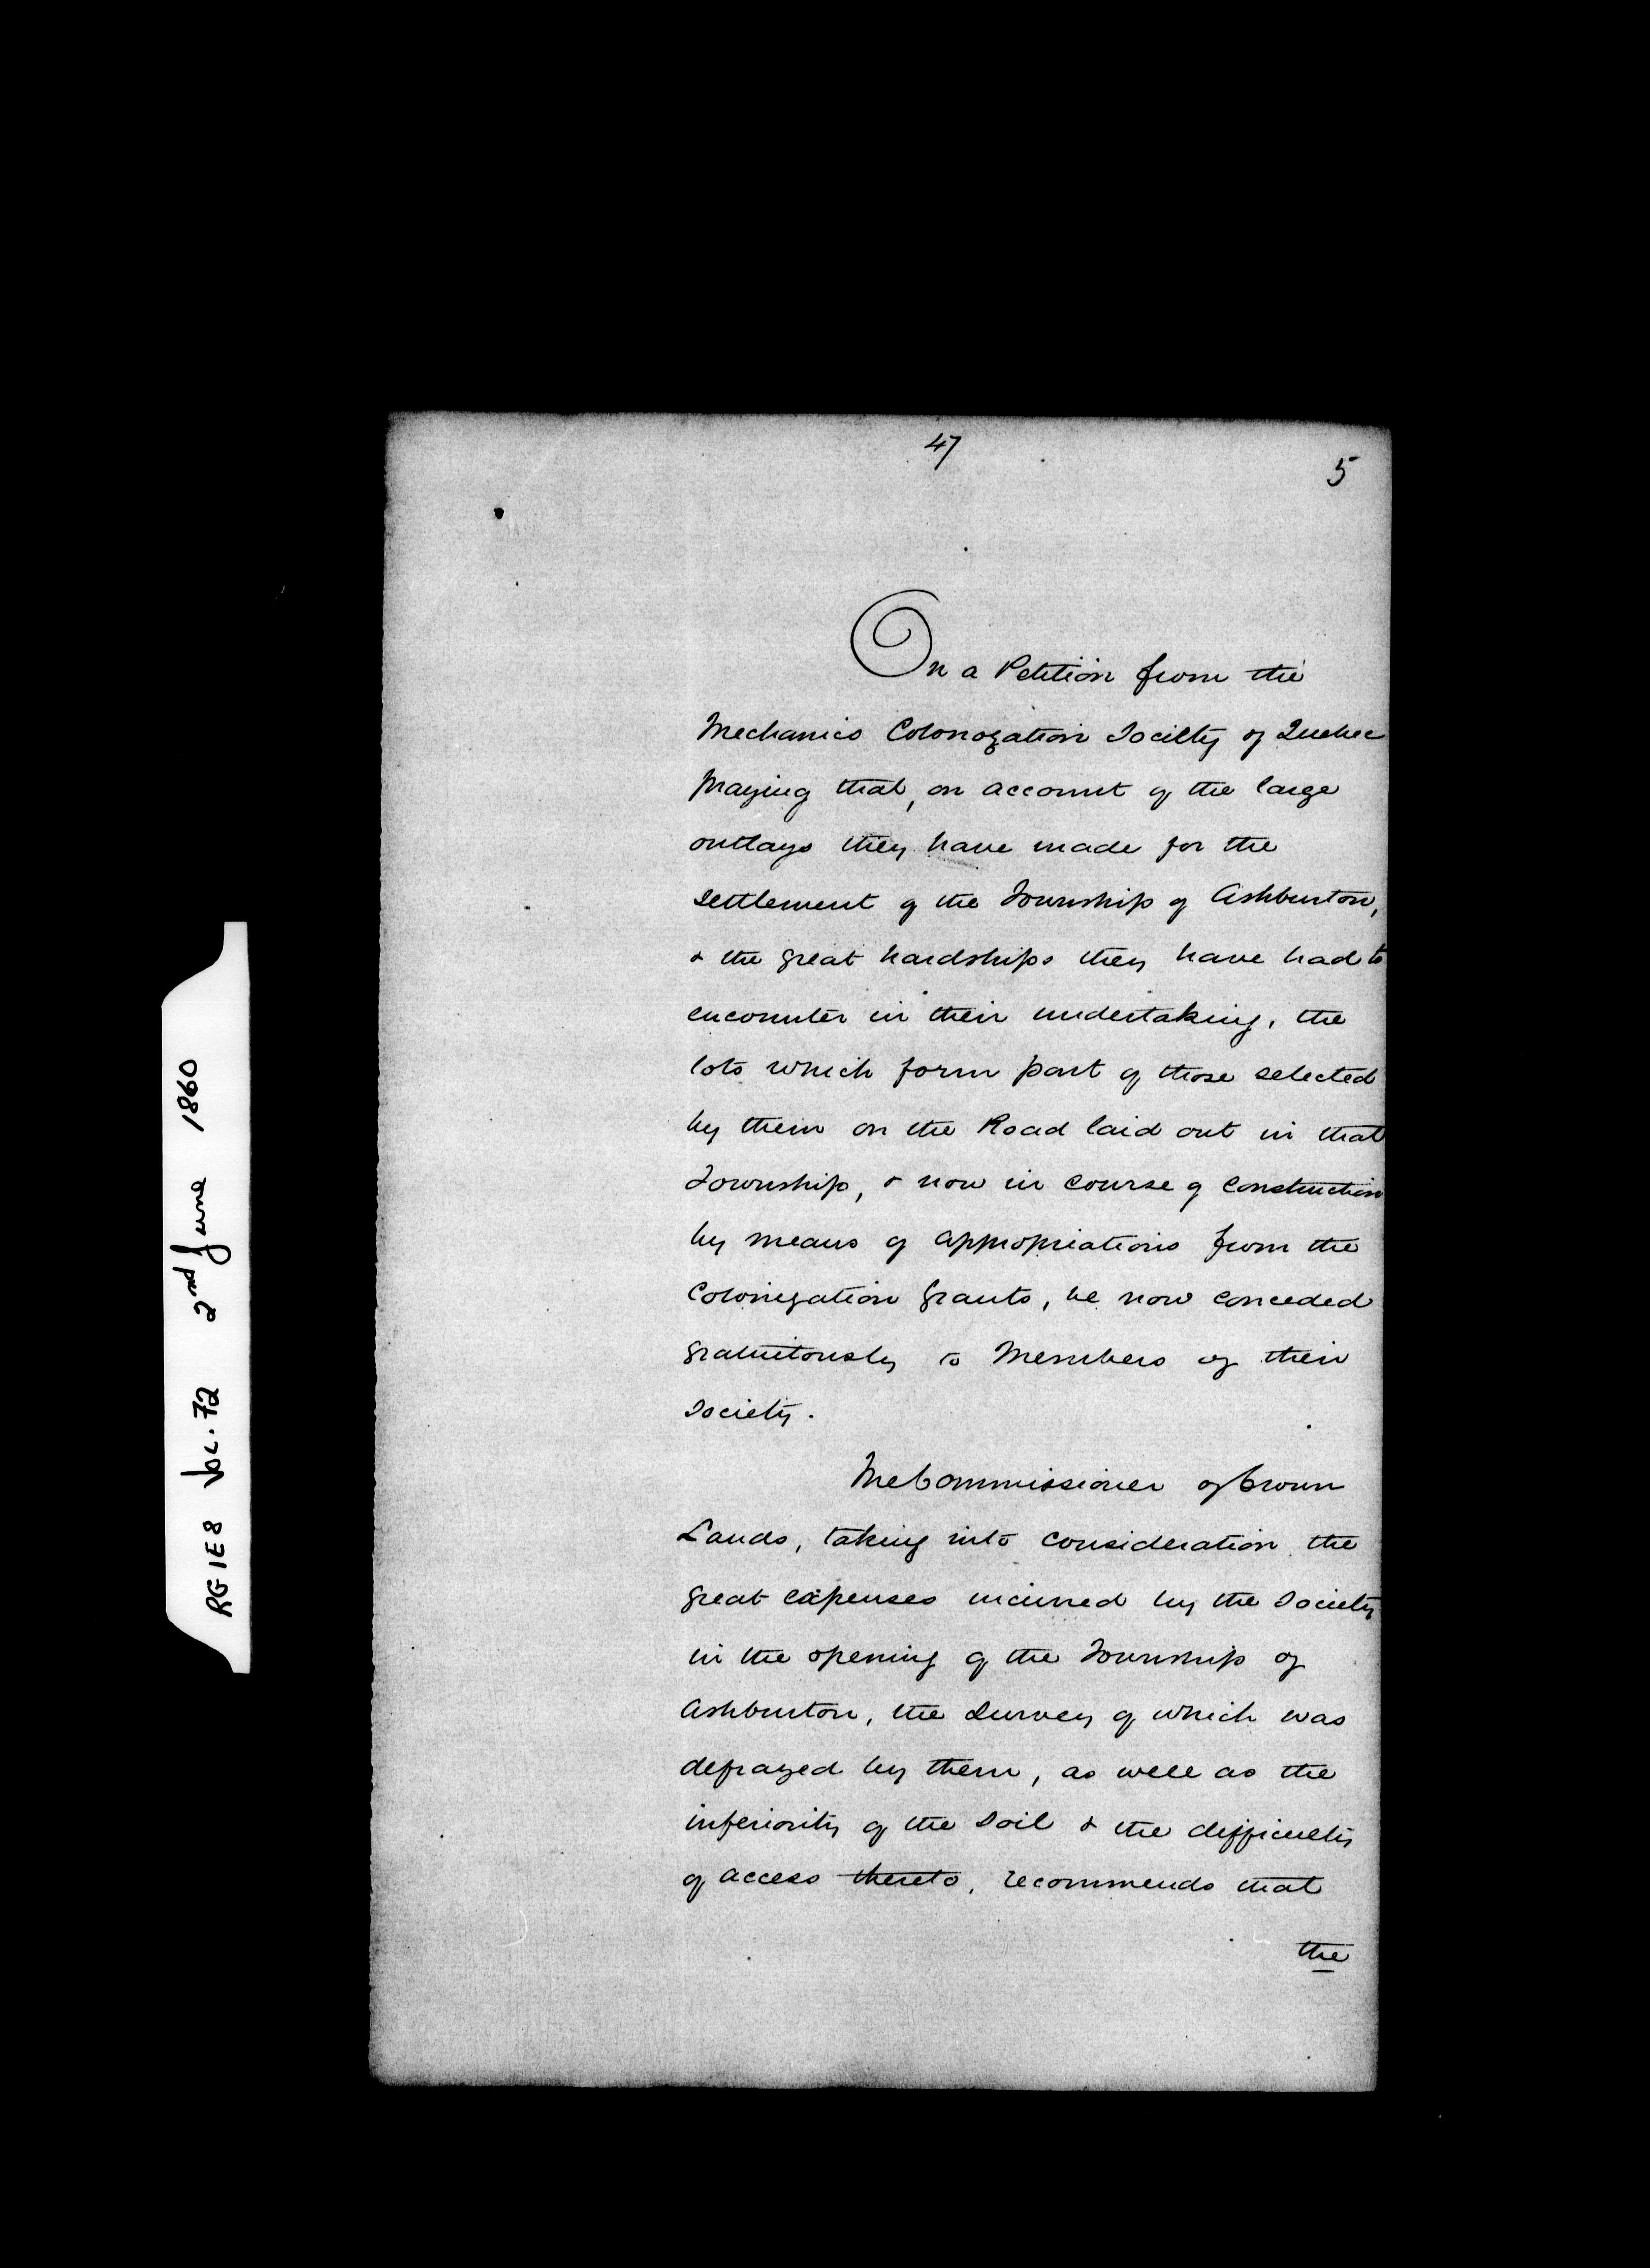 47
5
On a Petition from the
Mechanics Colonozation Society of Quebec
praying that, on account of the large
outlays they have made for the
settlement of the Township of Ashburton,
& the great hardships they have had to
encounter in their undertaking, the
lots which form part of those selected
by them on the Road laid out in that
Township, & now in course of construction
by means of appropriations from the
Colonization Grants, be now conceded
gratuitously to Members of their
Society.
The Commissioner of Crown
Lands, taking into consideration the
great expenses incurred by the Society
in the opening of the Township of
Ashburton, the survey of which was
defrayed by them, as well as the
inferiority of the soil & the difficulty
of access thereto, recommends that
the
RG 1E8 VOL. 72 2nd June 1860